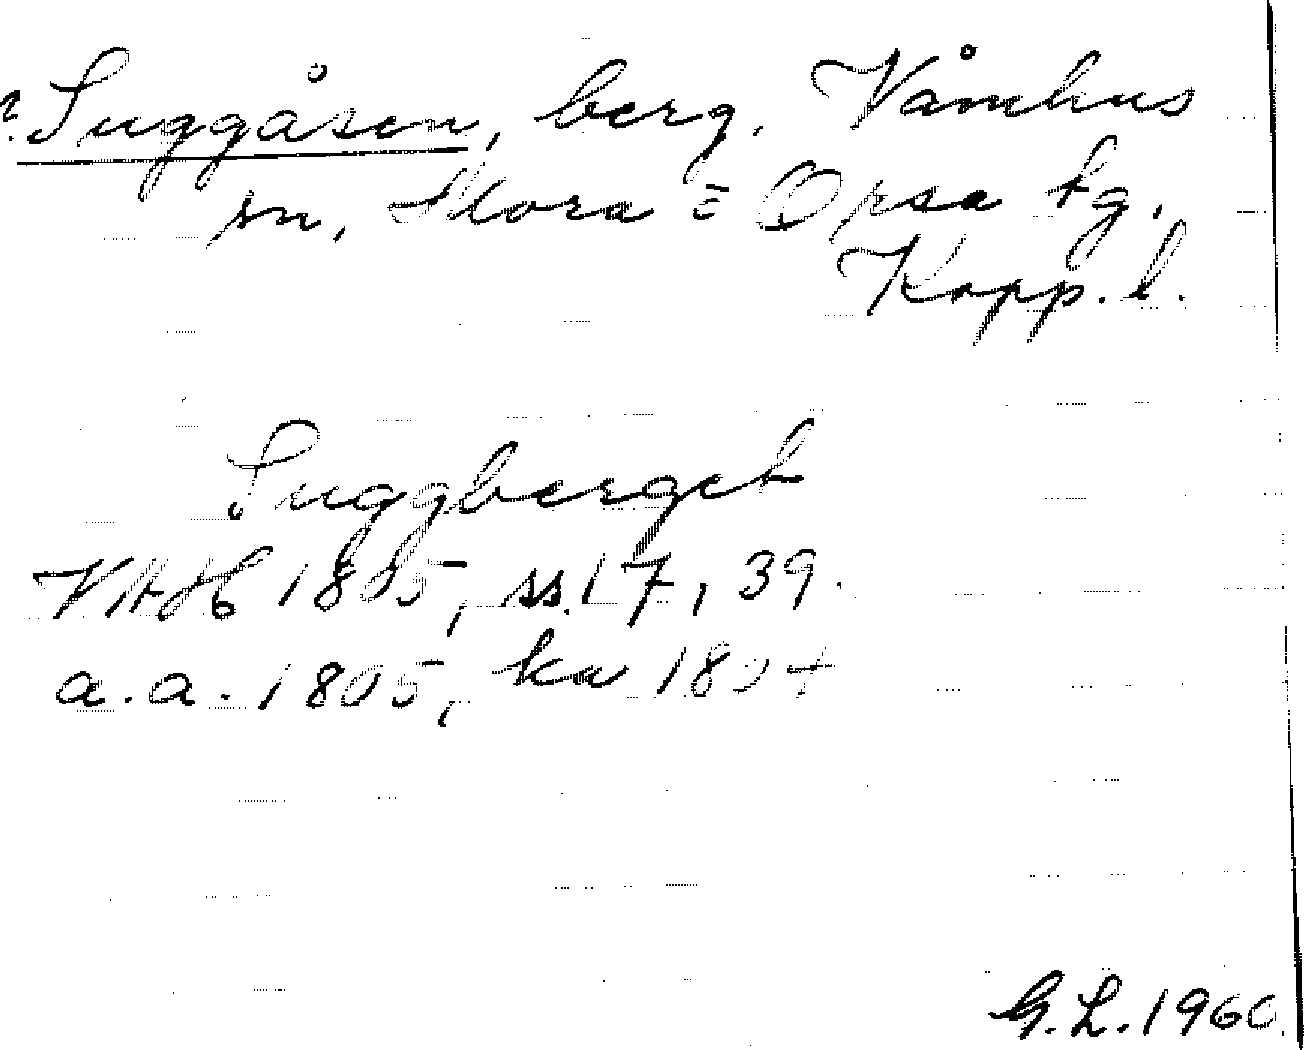 ? Suggåsen, berg. Våmhus
sn, Mora = Orsa tg.
Kopp. l.
Suggberget
VAH 1805, ss. 17, 39.
a.a. 1805, ka 1804
G.L. 1960